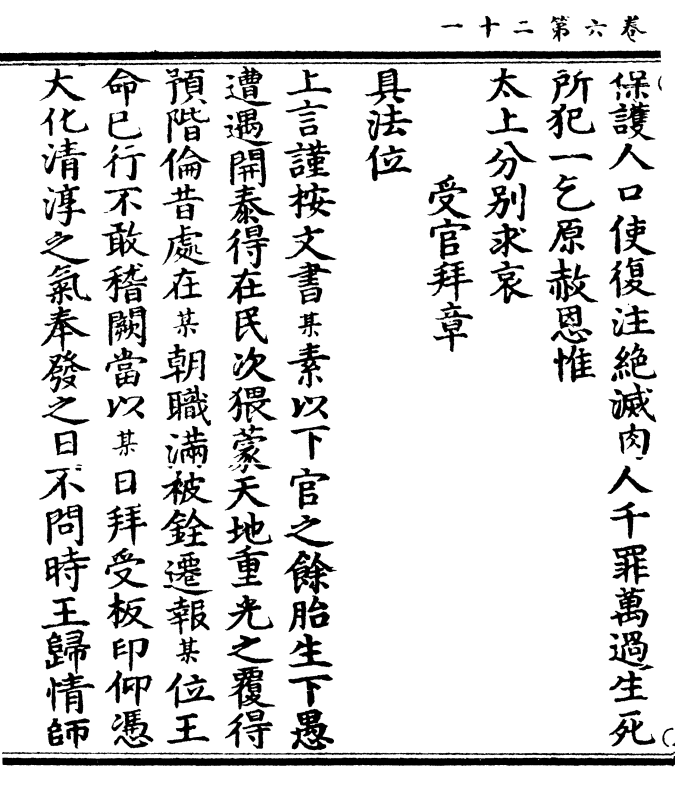 卷六第二十一
保護人口使復注絕滅肉人千罪萬過生死
所犯一乞原赦恩惟
太上分別求哀
受官拜章
具法位
上言謹桉文書某素以下官之餘胎生下愚
遭遇開泰得在民次猥蒙天地重光之覆得
預階倫昔處在某朝職滿被銓遷報某位王
命已行不敢稽闕當以某日拜受板印仰憑
大化清淳之氣奉發之日不問時王歸情師